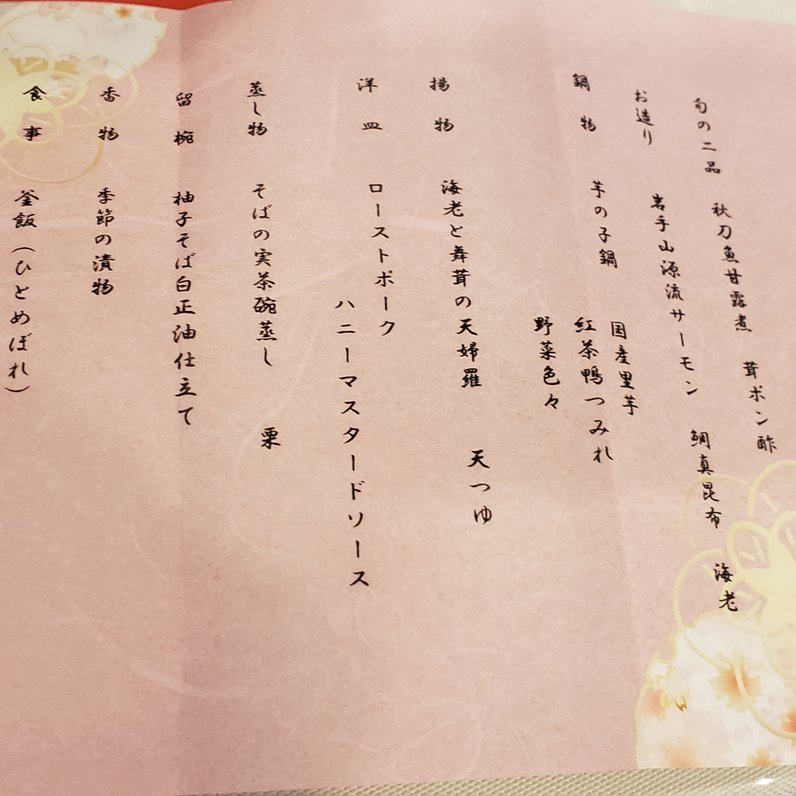 旬の二品 秋刀魚甘露煮 茸ポン酢
お造り 岩手山源流サーモン 鯛真昆布 海老
鍋物 芋の子鍋 国産里芋
紅茶鴨つみれ
野菜色々
揚物 海老と舞茸の天婦羅 天つゆ
洋皿 ローストポーク
ハニーマスタードソース
蒸し物 そばの実茶碗蒸し 栗
留椀 柚子そば白正油仕立て
香物 季節の漬物
食事 釜飯（ひとめぼれ）